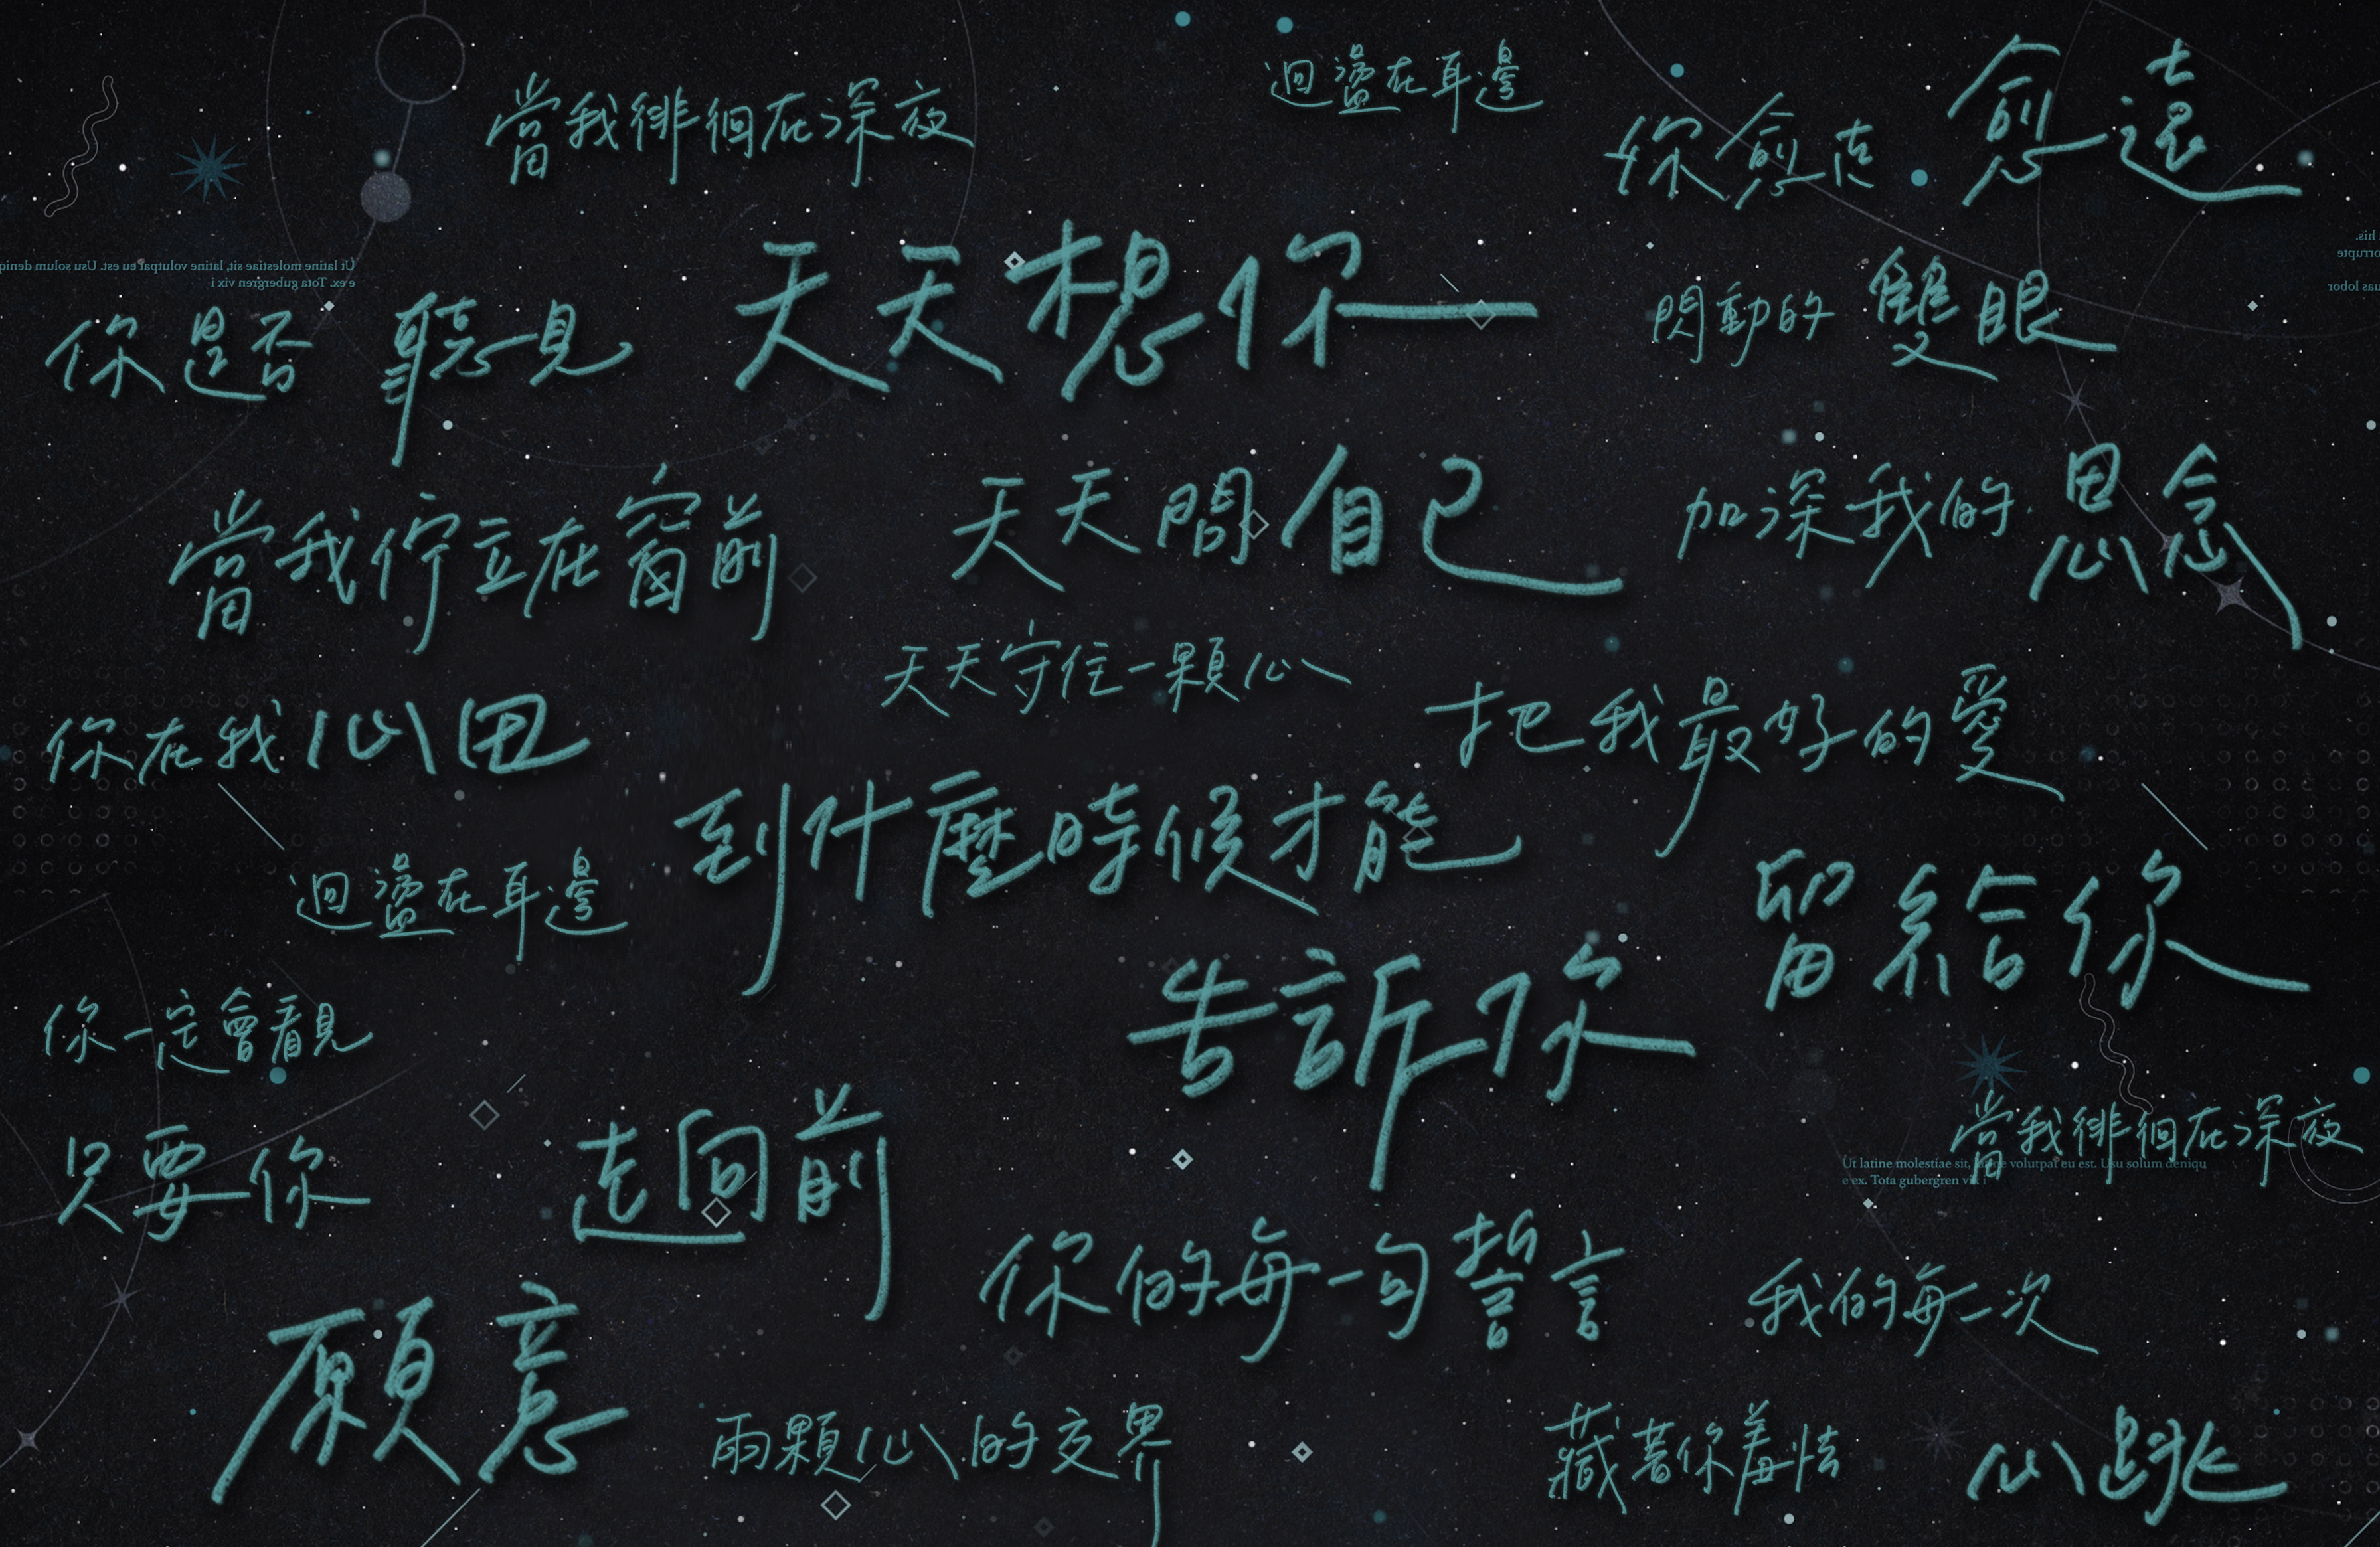 當我徘徊在深夜
迴盪在耳邊
你愈走 愈遠
Ut latine molestiae sit, latine volutpat eu est. Usu solum deniq
e ex. Tota gubergren vix i
his.
orrupte
uas lobor
你是否 聽見
天天想你
閃動的 雙眼
當我佇立在窗前
天天問自己
加深我的思念
天天守住一顆心
你在我心田
把我最好的愛
到什麼時候才能
迴盪在耳邊
留給你
你一定會看見
告訴你
只要你
走向前
當我徘徊在深夜
Ut latine molestiae sit, latine volutpat eu est. Usu solum deniqu
e ex. Tota gubergren vix i
你的每一句誓言
我的每一次
願意
兩顆心的交界
藏著你羞怯
心跳